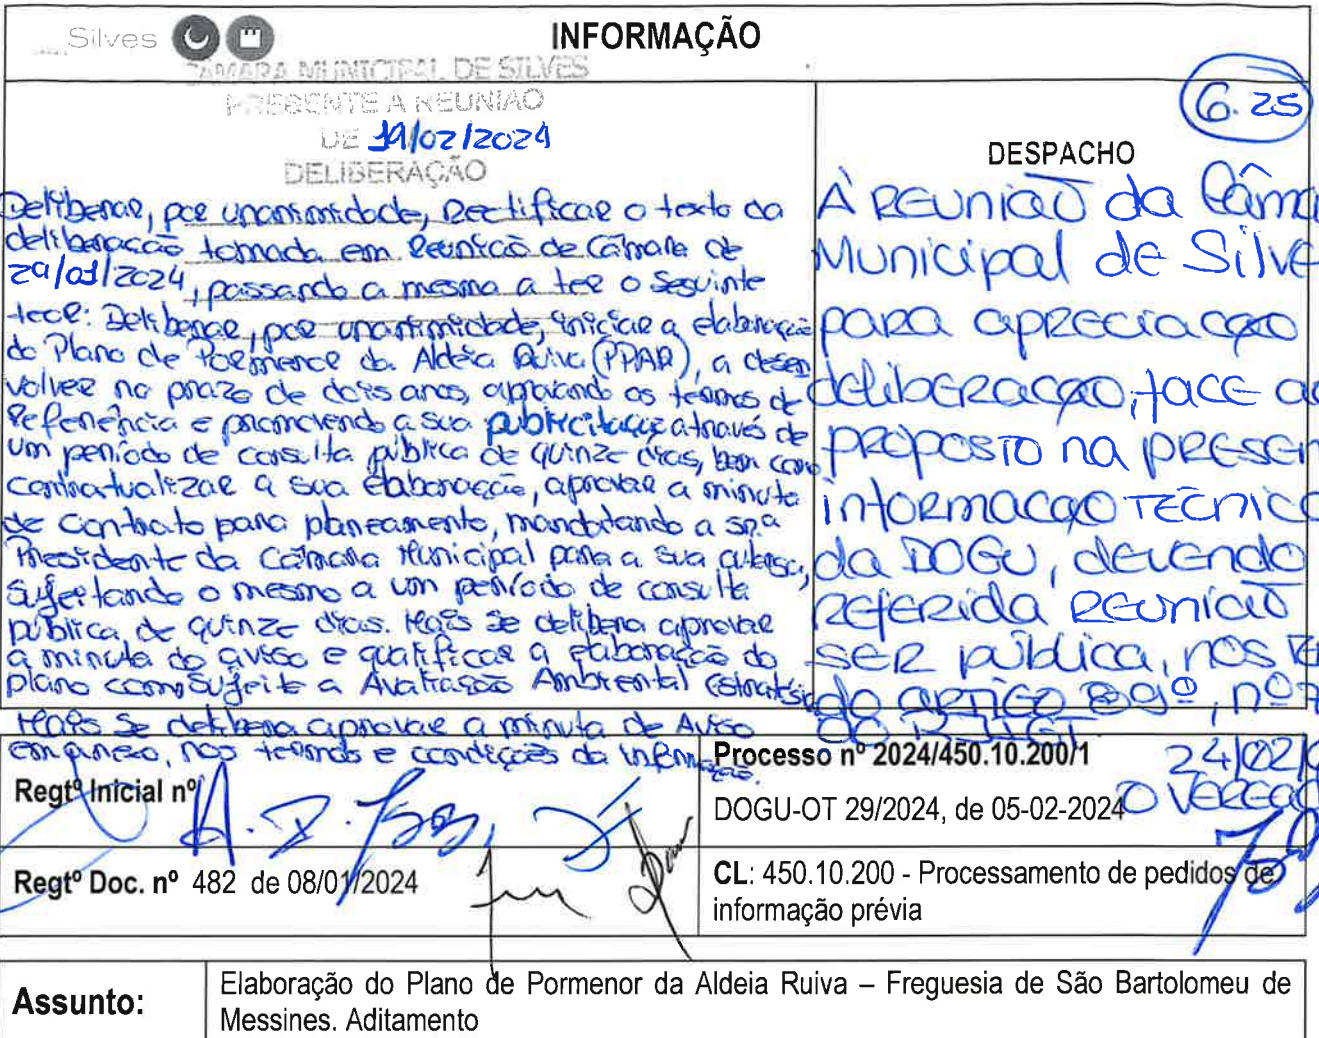 Silves
INFORMAÇÃO
CÂMARA MUNICIPAL DE SILVES
PRESENTE A REUNIÃO
DE 19/02/2024
DELIBERAÇÃO
Deliberar, por unanimidade, rectificar o texto da
deliberação tomada em Reunião de Câmara de
29/01/2024, passando a mesma a ter o seguinte
teor: Deliberar, por unanimidade, iniciar a elaboração
do Plano de Pormenor da Aldeia Ruiva (PPAR), a desen
volver no prazo de dois anos, aprovando os termos de
referência e promovendo a sua publicitação através de
um período de consulta pública de quinze dias, bem como
contratualizar a sua elaboração, aprovar a minuta
de contrato para planeamento, mandatando a Sr.ª
Presidente da Câmara Municipal para a sua outorga,
sujeitando o mesmo a um período de consulta
pública, de quinze dias. Mais se delibera aprovar
a minuta do aviso e qualificar a elaboração do
plano como sujeito a Avaliação Ambiental Estratégi
Mais se delibera aprovar a minuta de Aviso
em anexo, nos termos e condições da informação.
6.25
DESPACHO
À REUNIÃO da Câma
Municipal de Silve
para apreciação
deliberação, face ao
proposto na presen
informação técnic
da DOGU, devendo
referida reunião
ser pública, nos te
do artigo 89º, nº 7
do RJIGT
24/02/0
O Veread
Regtº Inicial nº
Processo nº 2024/450.10.200/1
DOGU-OT 29/2024, de 05-02-2024
Regtº Doc. nº 482 de 08/01/2024
CL: 450.10.200 - Processamento de pedidos de
informação prévia
Assunto:
Elaboração do Plano de Pormenor da Aldeia Ruiva – Freguesia de São Bartolomeu de
Messines. Aditamento